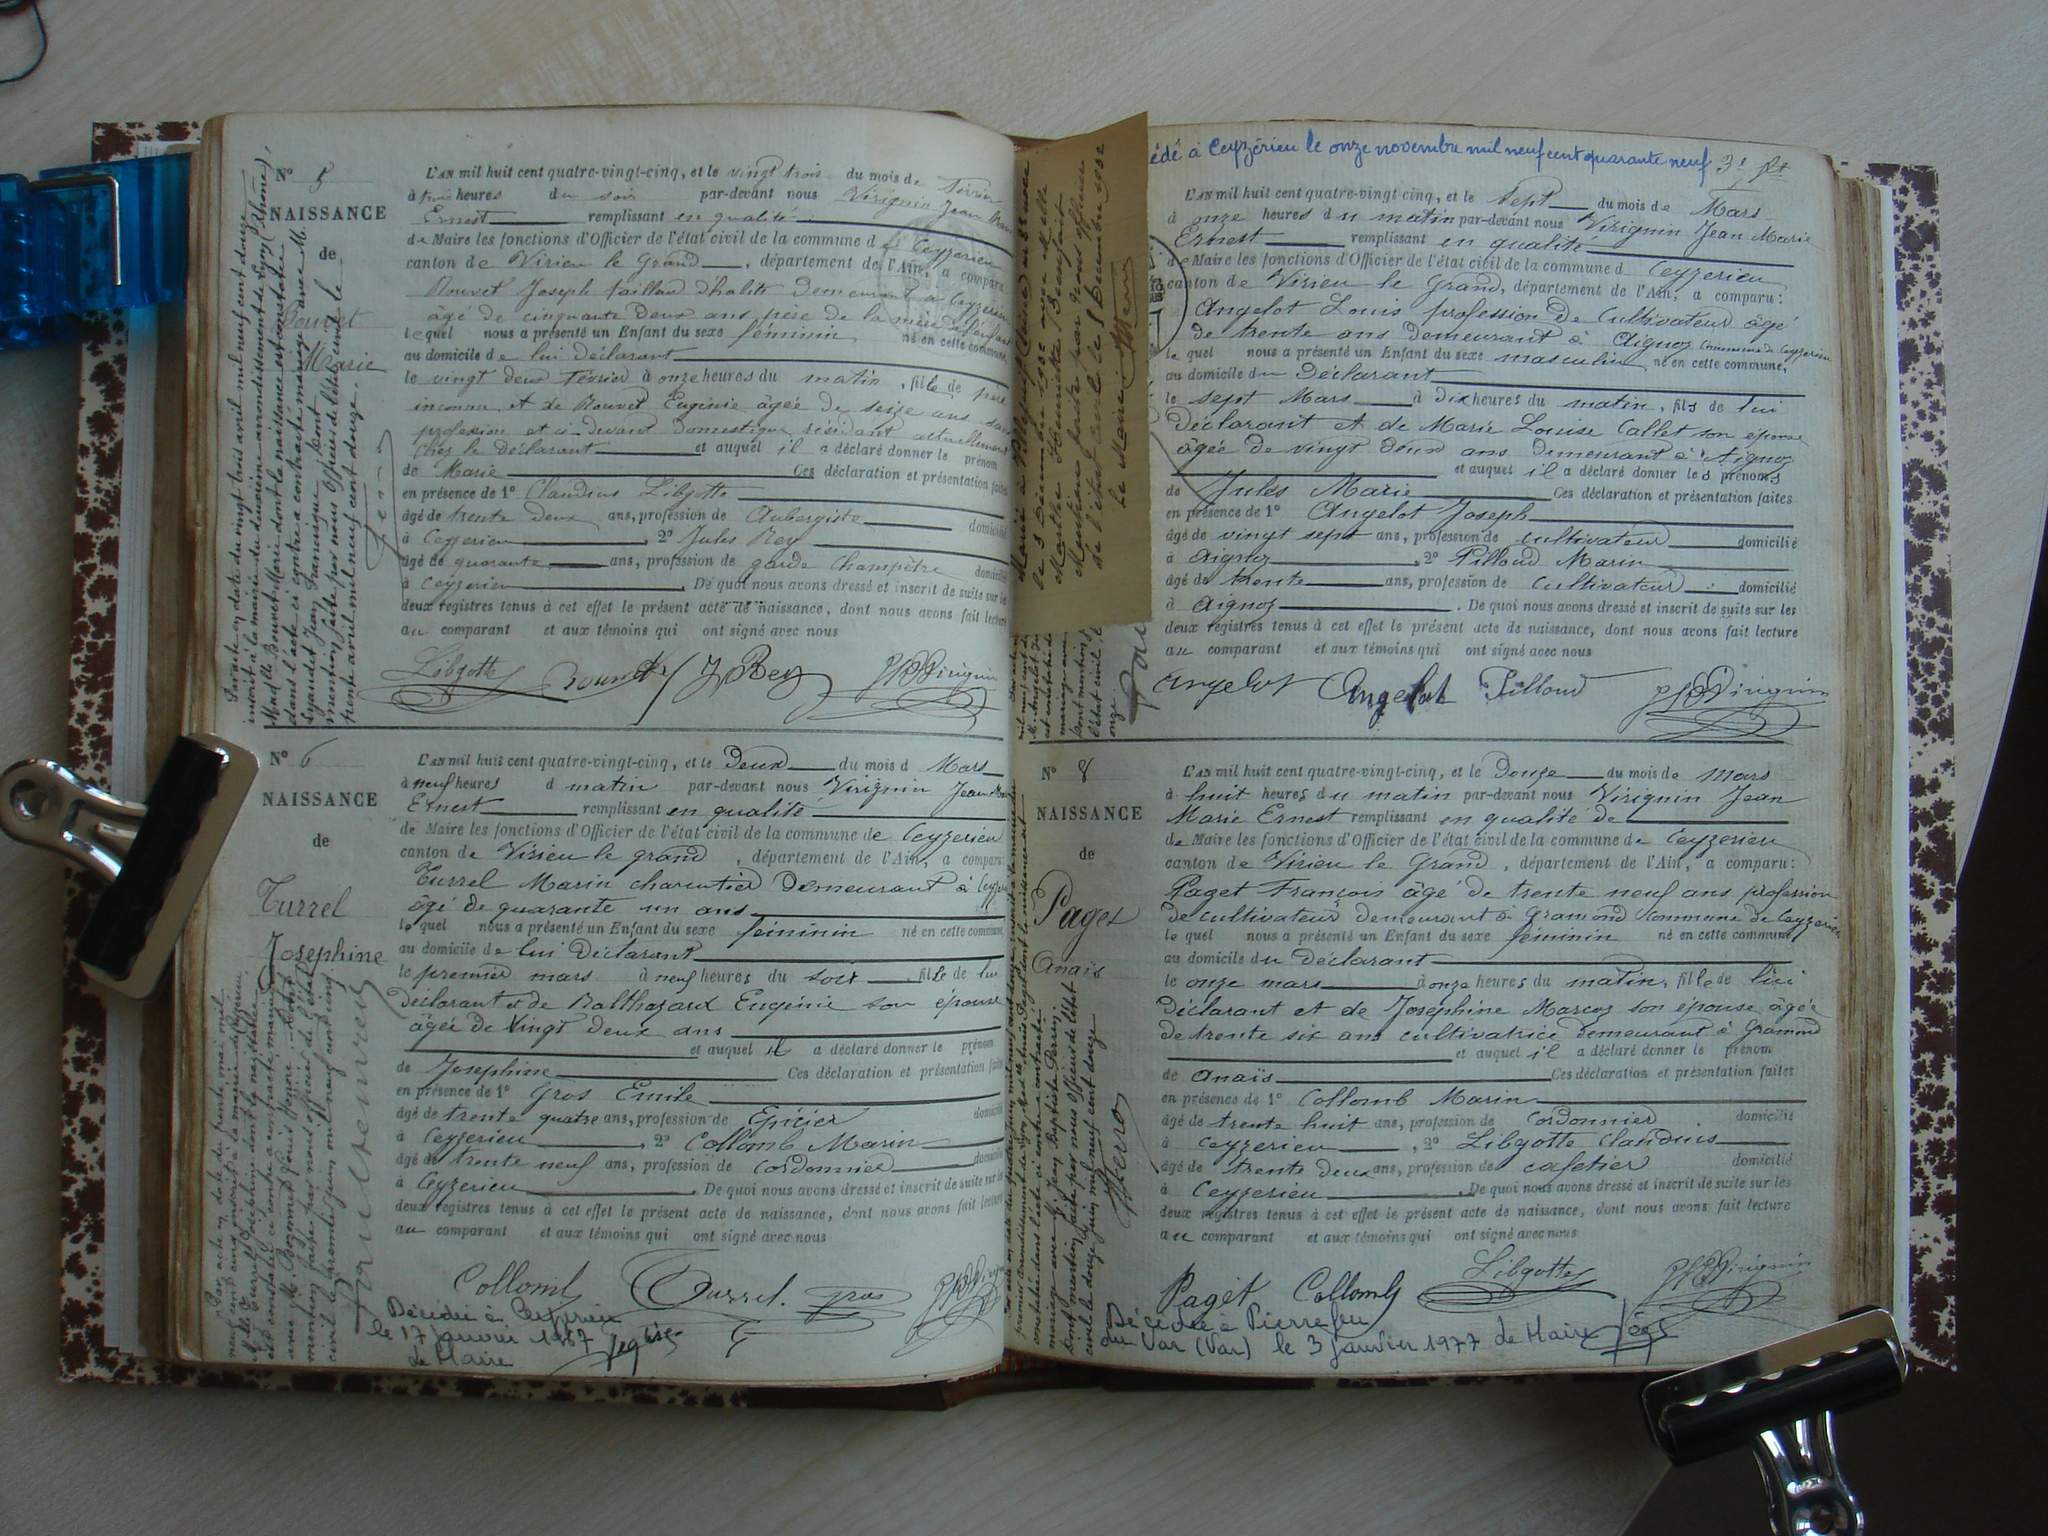 N° 5
NAISSANCE
de
Bouvet
Marie
L'AN mil huit cent quatre-vingt-cinq, et le vingt trois du mois de Février
à trois heures du soir par-devant nous Virignin Jean
Ernest remplissant en qualité
de Maire les fonctions d'Officier de l'état civil de la commune de Ceyzerieu
canton de Virieu le Grand, département de l'Ain, a comparu
Bouvet Joseph tailleur d'habits demeurant à Ceyzerieu
âgé de cinquante deux ans père de la mère de l'enfant
lequel nous a présenté un Enfant du sexe féminin, né en cette commune,
au domicile de lui déclarant
le vingt deux Février à onze heures du matin, fille de père
inconnu et de Bouvet Eugénie âgée de seize ans sans
profession et ci-devant domestique résidant actuellement
chez le déclarant et auquel il a déclaré donner le prénom
de Marie Ces déclaration et présentation faites
en présence de 1° Claudius Libgotte
âgé de trente deux ans, profession de Aubergiste domicilié
à Ceyzerieu, 2° Jules Rey
âgé de quarante ans, profession de garde champêtre domicilié
à Ceyzerieu. De quoi nous avons dressé et inscrit de suite sur les
deux registres tenus à cet effet le présent acte de naissance, dont nous avons fait lecture
au comparant et aux témoins qui ont signé avec nous
Libgotte Bouvet J Rey Virignin
Par acte en date du vingt trois avril mil neuf cent douze
inscrit à la mairie du deuxième arrondissement de Lyon (Rhône),
Mad.lle Bouvet Marie dont la naissance est constatée
dans l'acte ci contre a contracté mariage avec M.
Jean Francisque, dont
mention faite par nous officier de l'état civil le
trente avril mil neuf cent douze.
N° 6
NAISSANCE
de
Turrel
Josephine
L'AN mil huit cent quatre-vingt-cinq, et le Deux du mois d Mars
à neuf heures d matin par-devant nous Virignin Jean Marie
Ernest remplissant en qualité
de Maire les fonctions d'Officier de l'état civil de la commune de Ceyzerieu
canton de Virieu le grand, département de l'Ain, a comparu
Turrel Marin charpentier demeurant à Ceyzerieu
âgé de quarante un ans
le quel nous a présenté un Enfant du sexe féminin né en cette commune
au domicile de lui déclarant
le premier mars à neuf heures du soir, fille de lui
déclarant et de Balthazard Eugénie son épouse
âgée de vingt deux ans
et auquel il a déclaré donner le prénom
de Josephine Ces déclaration et présentation faites
en présence de 1° Gros Emile
âgé de trente quatre ans, profession de Epicier domicilié
à Ceyzerieu, 2° Collomb Marin
âgé de trente neuf ans, profession de Cordonnier domicilié
à Ceyzerieu. De quoi nous avons dressé et inscrit de suite sur les
deux registres tenus à cet effet le présent acte de naissance, dont nous avons fait lecture
au comparant et aux témoins qui ont signé avec nous
Collomb Turrel gros Virignin
Décédée à Ceyzérieu
le 17 Janvier 1967
Le Maire
Par acte en date du trente mai mil
neuf cent cinq inscrit à la mairie de
M.elle Turrel Josephine dont la naissance
est constatée ci contre a contracté mariage
avec M. Bonnet Louis Honoré. Dont
mention faite par nous officier de l'état
civil le premier juin mil neuf cent cinq.
édé à Ceyzérieu le onze novembre mil neuf cent quarante neuf
3e ft
L'AN mil huit cent quatre-vingt-cinq, et le Sept du mois de Mars
à onze heures du matin par-devant nous Virignin Jean Marie
Ernest remplissant en qualité
de Maire les fonctions d'Officier de l'état civil de la commune d Ceyzerieu
canton de Virieu le Grand, département de l'Ain, a comparu:
Angelot Louis profession de Cultivateur âgé
de trente ans demeurant à Aignoz commune de Ceyzerieu
le quel nous a présenté un Enfant du sexe masculin, né en cette commune,
au domicile du Déclarant
le sept Mars à dix heures du matin, fils de lui
Déclarant et de Marie Louise Callet son épouse
âgée de vingt deux ans demeurant à Aignoz
et auquel il a déclaré donner les prénoms
de Jules Marie Ces déclaration et présentation faites
en présence de 1° Angelot Joseph
âgé de vingt sept ans, profession de cultivateur domicilié
à Aignoz, 2° Pilloud Marin
âgé de trente ans, profession de Cultivateur domicilié
à Aignoz. De quoi nous avons dressé et inscrit de suite sur les
deux registres tenus à cet effet le présent acte de naissance, dont nous avons fait lecture
au comparant et aux témoins qui ont signé avec nous
Angelot Angelot Pilloud Virignin
Marié à
le 3 Décembre 1932 avec Melle
Marthe Henriette
Mention portée par nous officier
de l'état civil le 8 Décembre 1932
Le Maire
N° 8
NAISSANCE
de
Paget
Anaïs
L'AN mil huit cent quatre-vingt-cinq, et le Douze du mois de Mars
à huit heures du matin par-devant nous Virignin Jean
Marie Ernest remplissant en qualité de
de Maire les fonctions d'Officier de l'état civil de la commune de Ceyzerieu
canton de Virieu le Grand, département de l'Ain, a comparu:
Paget François âgé de trente neuf ans profession
de cultivateur demeurant à Gramond commune de Ceyzerieu
le quel nous a présenté un Enfant du sexe féminin né en cette commune,
au domicile du Déclarant
le onze mars à onze heures du matin, fille de lui
Déclarant et de Josephine Marcoz son épouse âgée
de trente six ans cultivatrice demeurant à Gramond
et auquel il a déclaré donner le prénom
de Anaïs Ces déclaration et présentation faites
en présence de 1° Collomb Marin
âgé de trente huit ans, profession de Cordonnier domicilié
à Ceyzerieu, 2° Libgotte Claudius
âgé de trente deux ans, profession de cafetier domicilié
à Ceyzerieu. De quoi nous avons dressé et inscrit de suite sur les
deux registres tenus à cet effet le présent acte de naissance, dont nous avons fait lecture
au comparant et aux témoins qui ont signé avec nous
Paget Collomb Libgotte Virignin
Décédée à Pierrefeu
du Var (Var) le 3 Janvier 1977 Le Maire